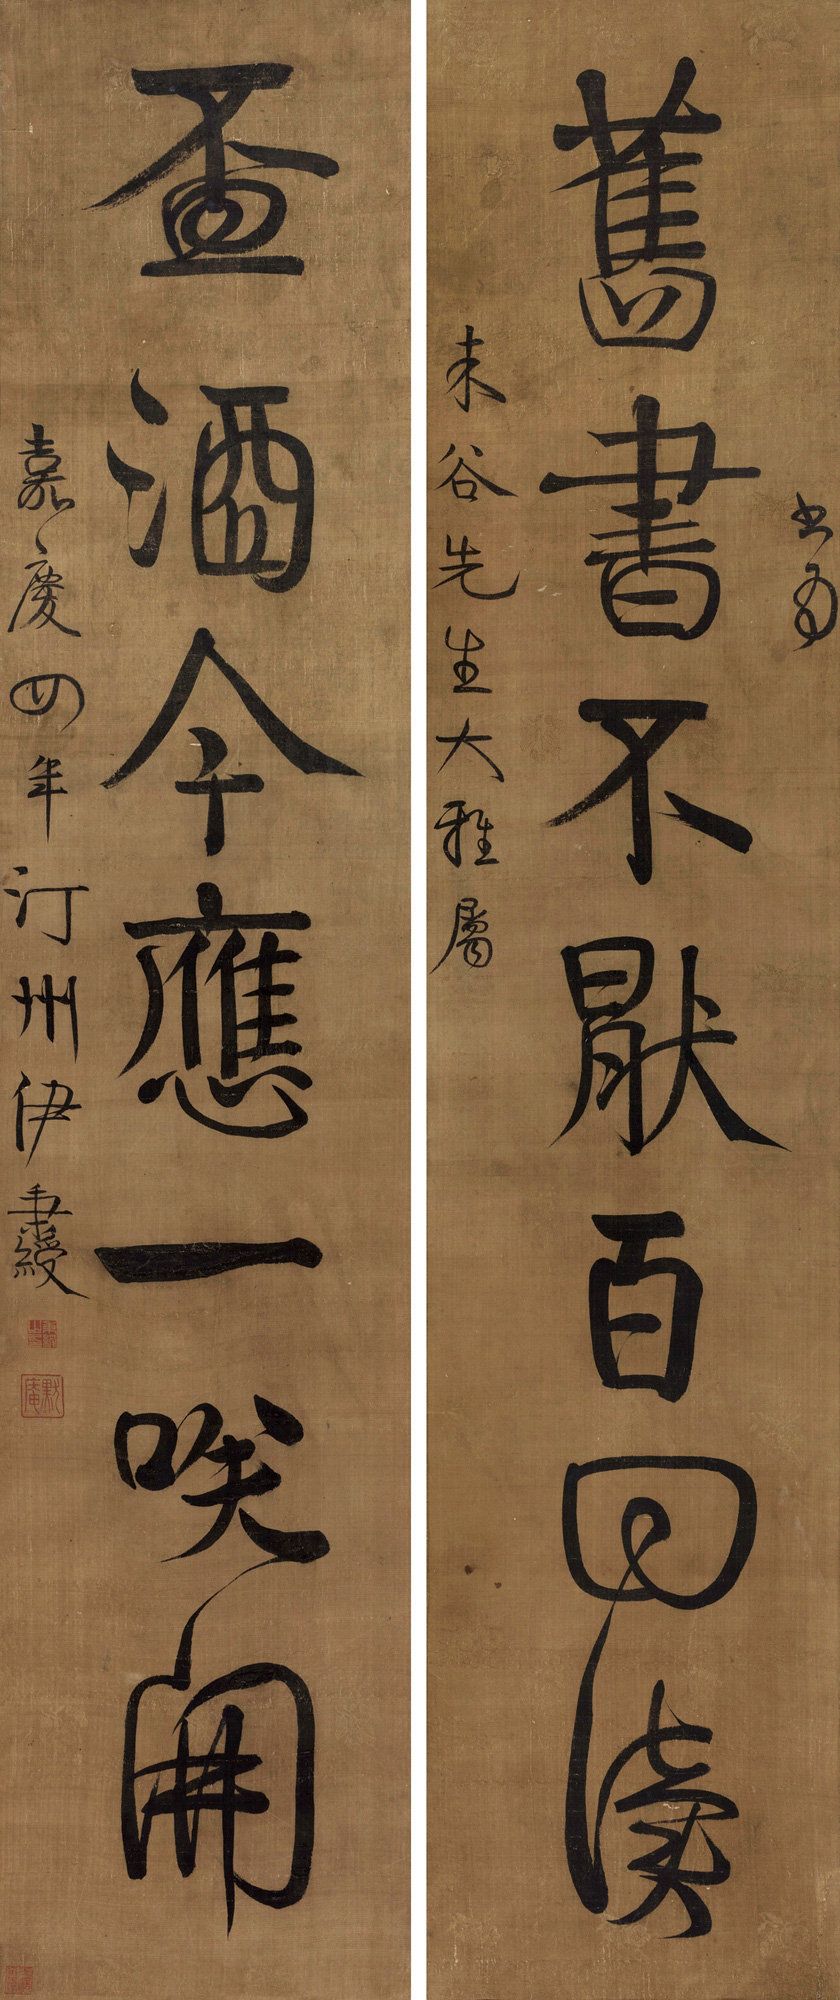 書為
舊書不猒百回讀
未谷先生大雅屬
盃酒今應一咲開
嘉慶四年汀州伊秉綬
默庵